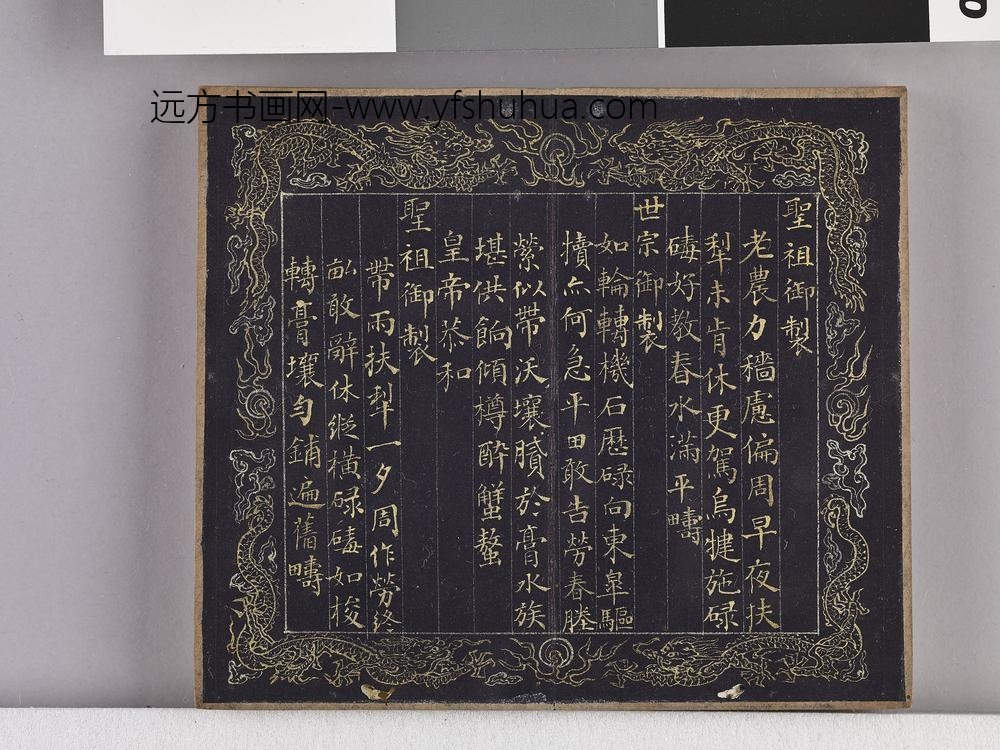 远方书画网-www.yfshuhua.com
聖祖御製
老農力穡慮偏周早夜扶
犁未肯休更駕烏犍施碌
碡好教春水滿平疇
世宗御製
如輪轉機石歷碌向東皐驅
犢亦何急平田敢告勞春塍
縈似帶沃壤膩於膏水族
堪供餉傾樽酔蟹螯
皇帝恭和
聖祖御製
帶雨扶犁一夕周作勞終
畝敢辭休縱橫碌碡如梭
轉膏壤勻鋪遍舊疇